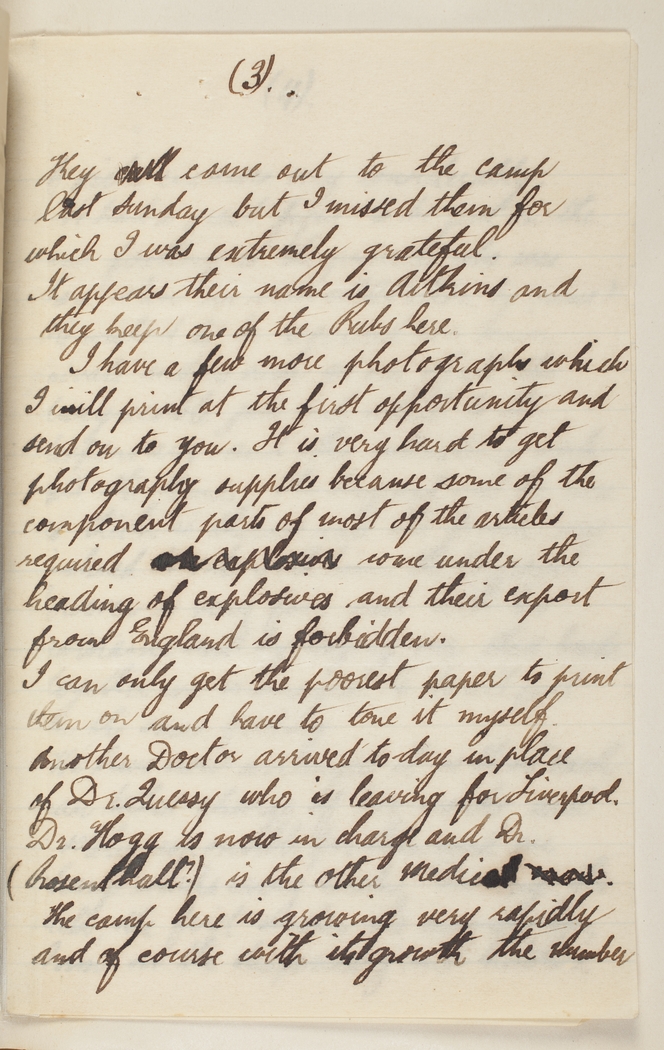 (3).
They all come out to the camp
last Sunday but I missed them for
which I was extremely grateful.
It appears their name is Aitkins and
they keep one of the Pubs here.
I have a few more photographs which
I will print at the first opportunity and
send on to you. It is very hard to get
photography supplies because some of the
component parts of most of the articles
required come under the
heading of explosives and their export
from England is forbidden.
I can only get the poorest paper to print
them on and have to tone it myself.
Another Doctor arrived to day in place
of Dr. Quessy who is leaving for Liverpool.
Dr. Hogg is now in charge and Dr.
(Rosenthall?) is the other Medical man.
The camp here is growing very rapidly
and of course with its growth the number